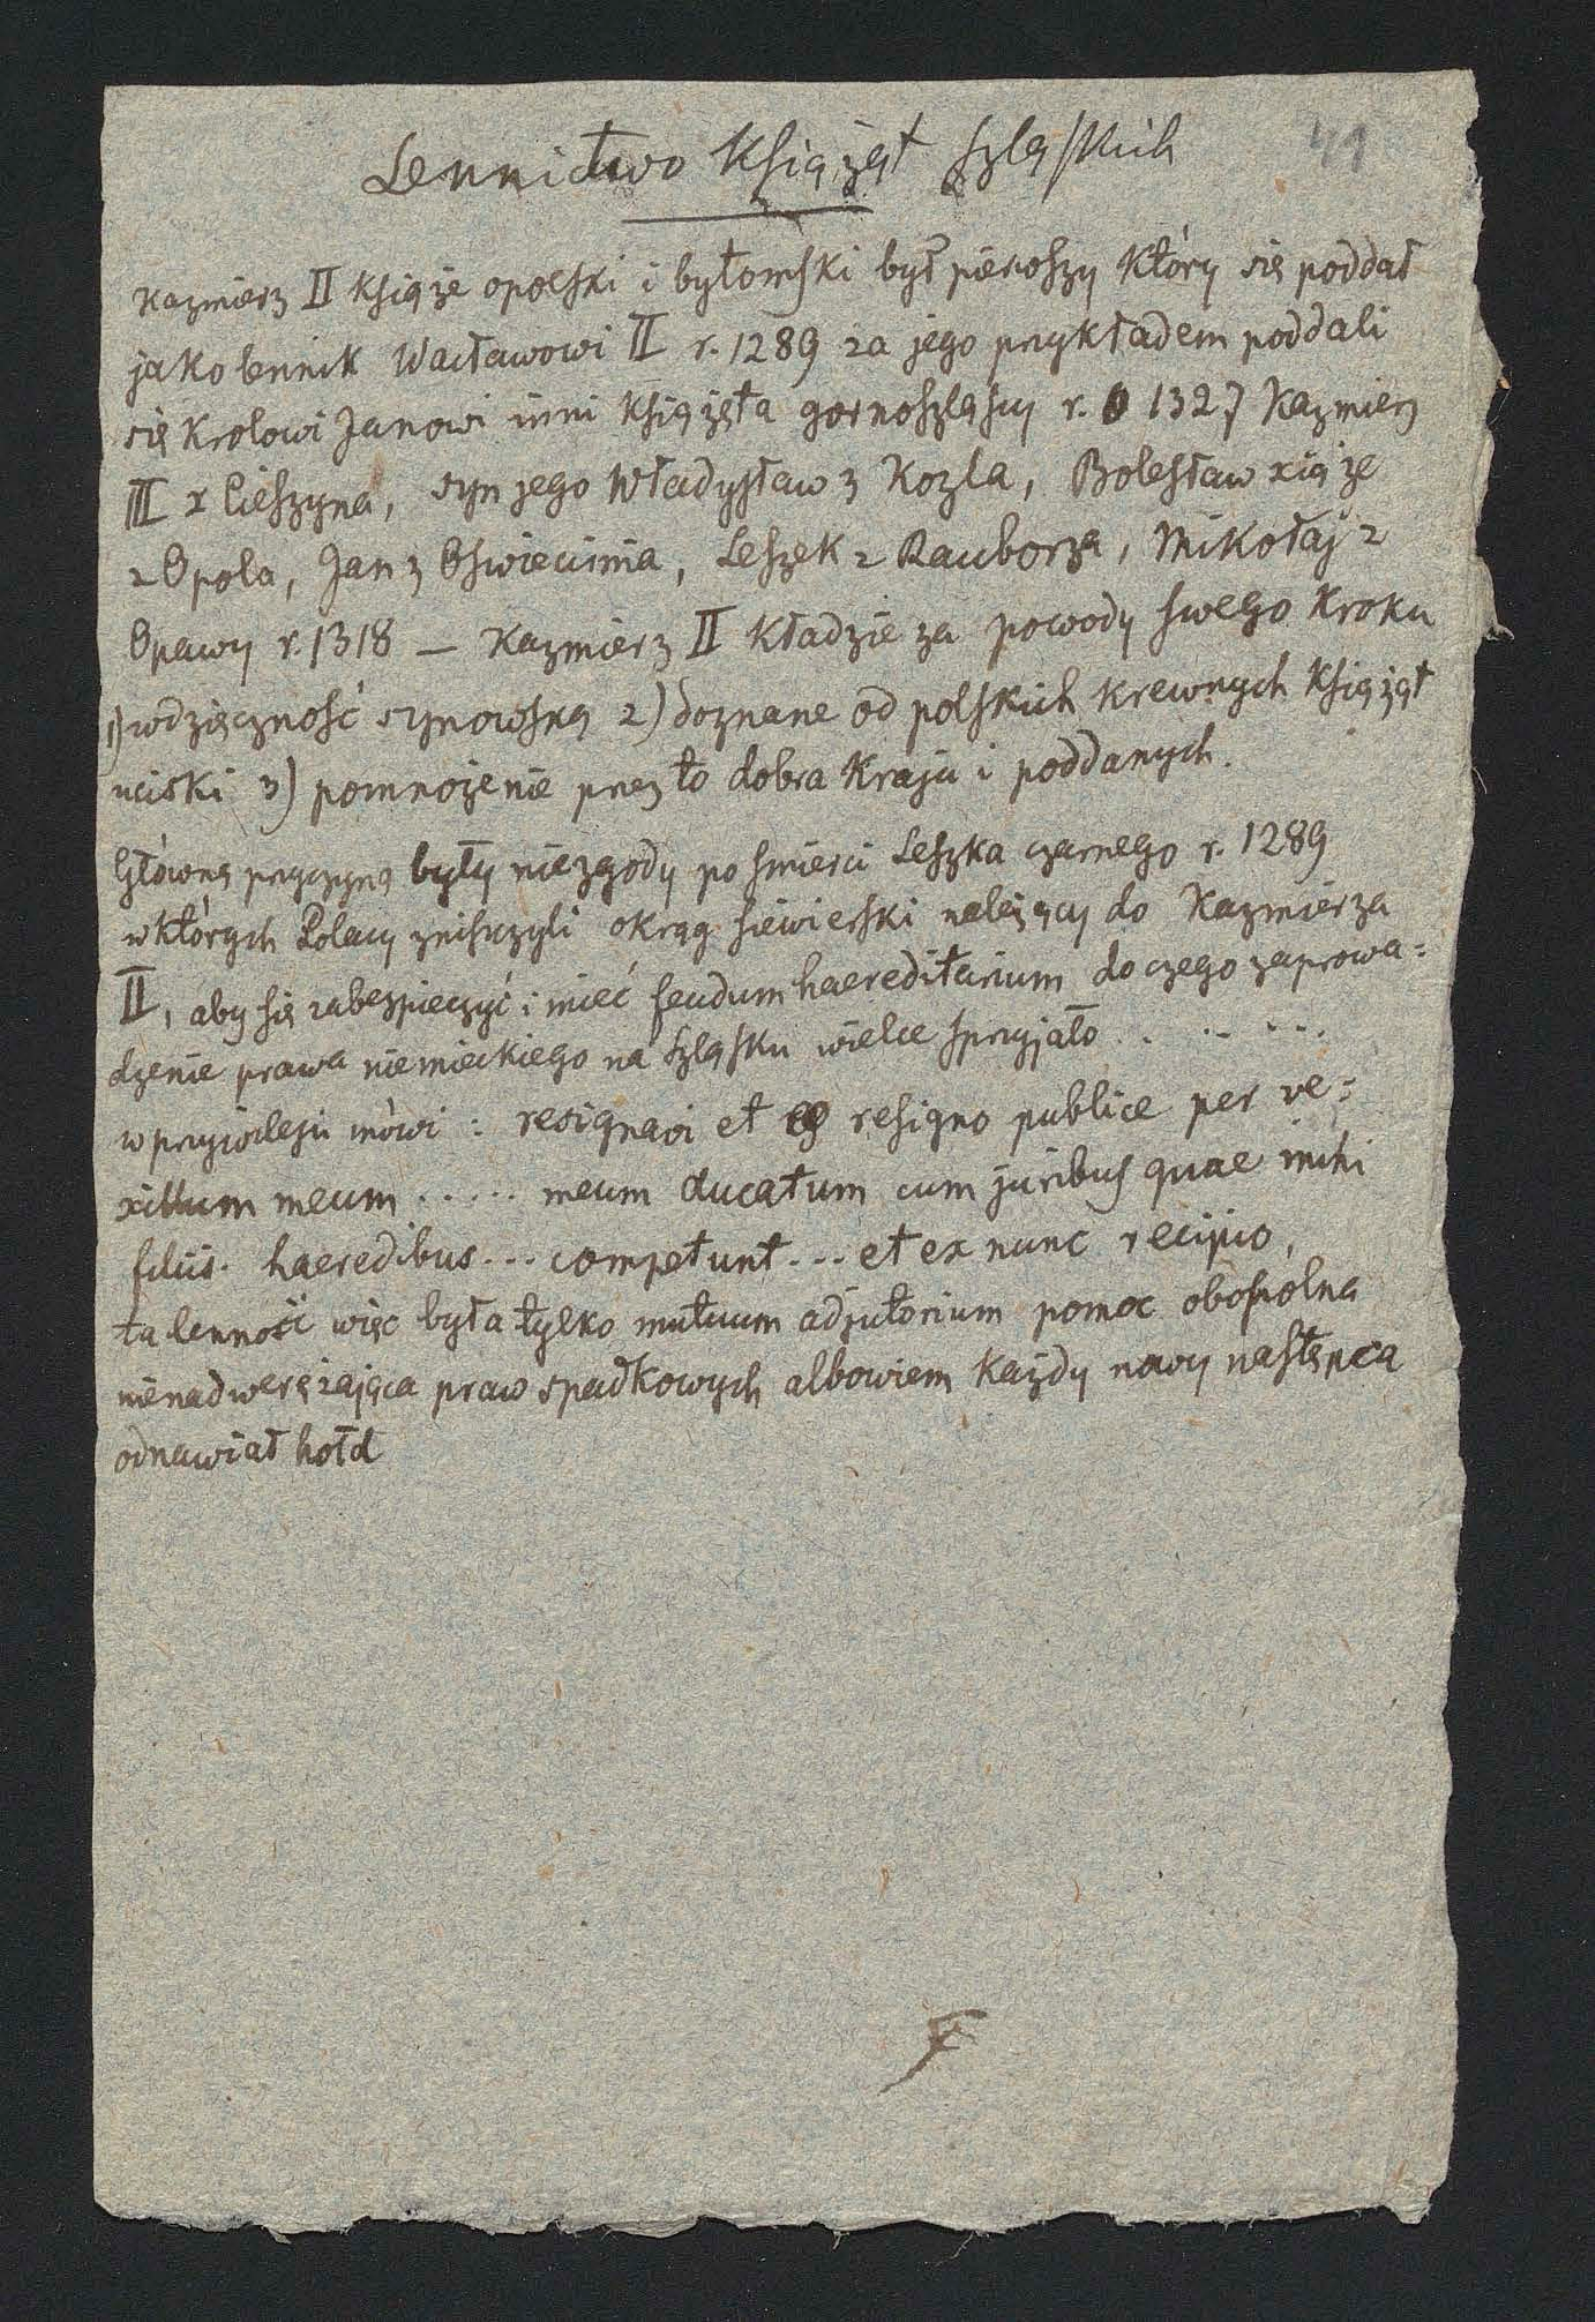 41
Lennictwo Książąt Szląskich
Kazmierz II Książe opolski i bytomski był pierwszy który się poddał
jako lennik Wacławowi II r. 1289 za jego przykładem poddali
się Krolowi Janowi inni Książęta gornoszląscy r. 1327 Kazmierz
III z Cieszyna, syn jego Władysław z Kozla, Bolesław xiąze
z Opola, Jan z Oswiecimia, Leszek z Rauborza, Mikołaj z
Opawy r. 1318 — Kazmierz II kładzie za powody swego kroku
1) wdzięczność synowską 2) doznane od polskich krewnych Książąt
uciski 3) pomnożenie przez to dobra kraju i poddanych.
Główną przyczyną były niezgody po smierci Leszka czarnego r. 1289
w których Polacy zniszczyli okrąg siewierski należący do Kazmierza
II, aby się zabezpieczyć i mieć feudum haereditarium do czego zaprowa=
dzenie prawa niemieckiego na Szląsku wielce sprzyjało . . – . . .
w przywileju mówi : resignavi et resigno publice per ve=
xillum meum . . . . . meum ducatum cum juribus quae mihi
filiis. haeredibus . . . competunt . . . et ex nunc recipio,
ta lenność więc była tylko mutuum adjutorium pomoc obopolna
nienadweręzająca praw spadkowych albowiem każdy nowy następca
odnawiał hołd